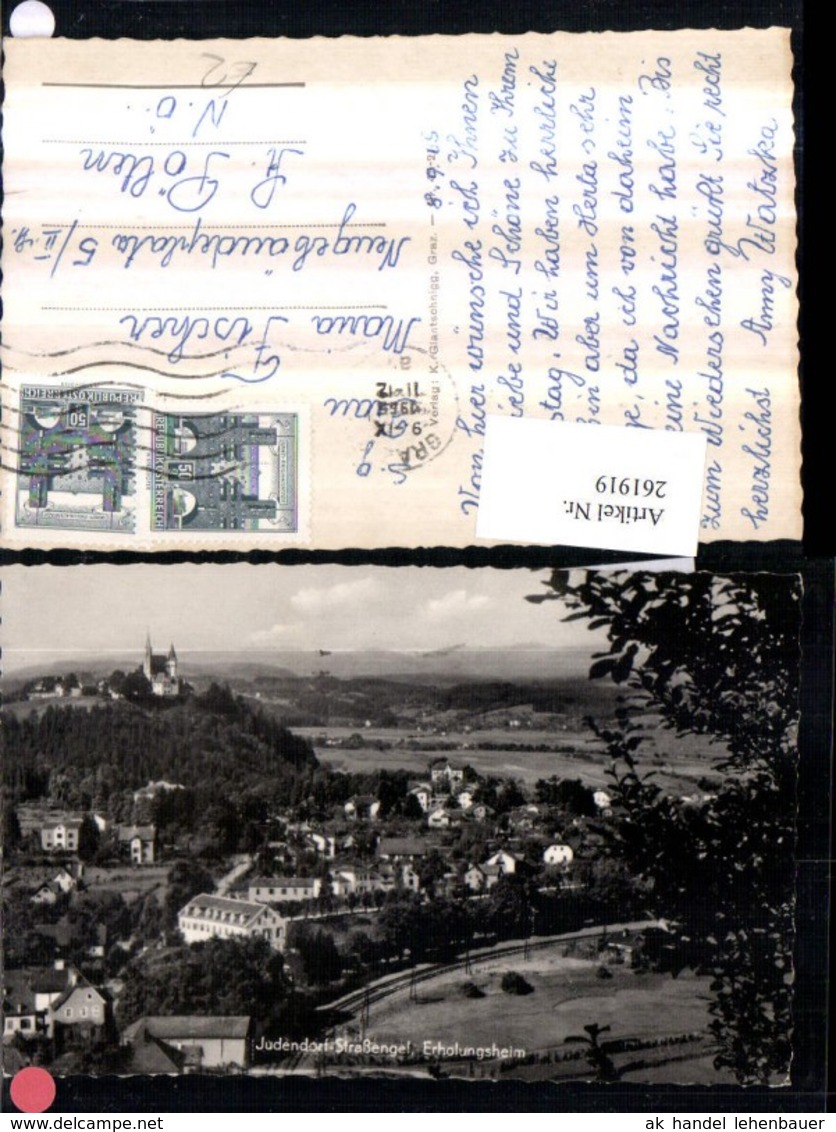 Von hier wünsche ich Ihnen
iebe und Schöne zu Ihrem
stag. Wir haben herrliche
bin aber um Herta sehr
ge, da ich von daheim
eine Nachricht habe. Bis
zum Wiedersehen grüßt Sie recht
herzlichst Anny Watzka
Artikel Nr.
261919
Verlag: K. Glantschnigg, Graz.
GRA
9. IX
11-12
Frau
Maria Fischer
Neugebäudeplatz 5/II.
St. Pölten
N.Ö.
E2
REPUBLIK ÖSTERREICH
50
REPUBLIK ÖSTERREICH
50
Judendorf-Straßengel Erholungsheim
ak handel lehenbauer